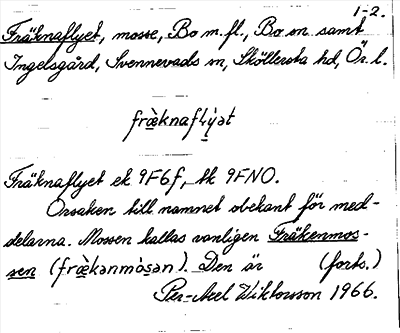 1-2.
Fräknaflyet, mosse, Bo m.fl., Bo sn. samt
Ingelsgård, Svennevads sn, Sköllersta hd, Ör. l.
Fräknaflyet ek 9F6f, tk 9FNO.
Orsaken till namnet obekant för med-
delarna. Mossen kallas vanligen Fräkenmos-
sen (fræ̀kənmòsən). Den är (forts.)
Per-Axel Wiktorsson 1966.